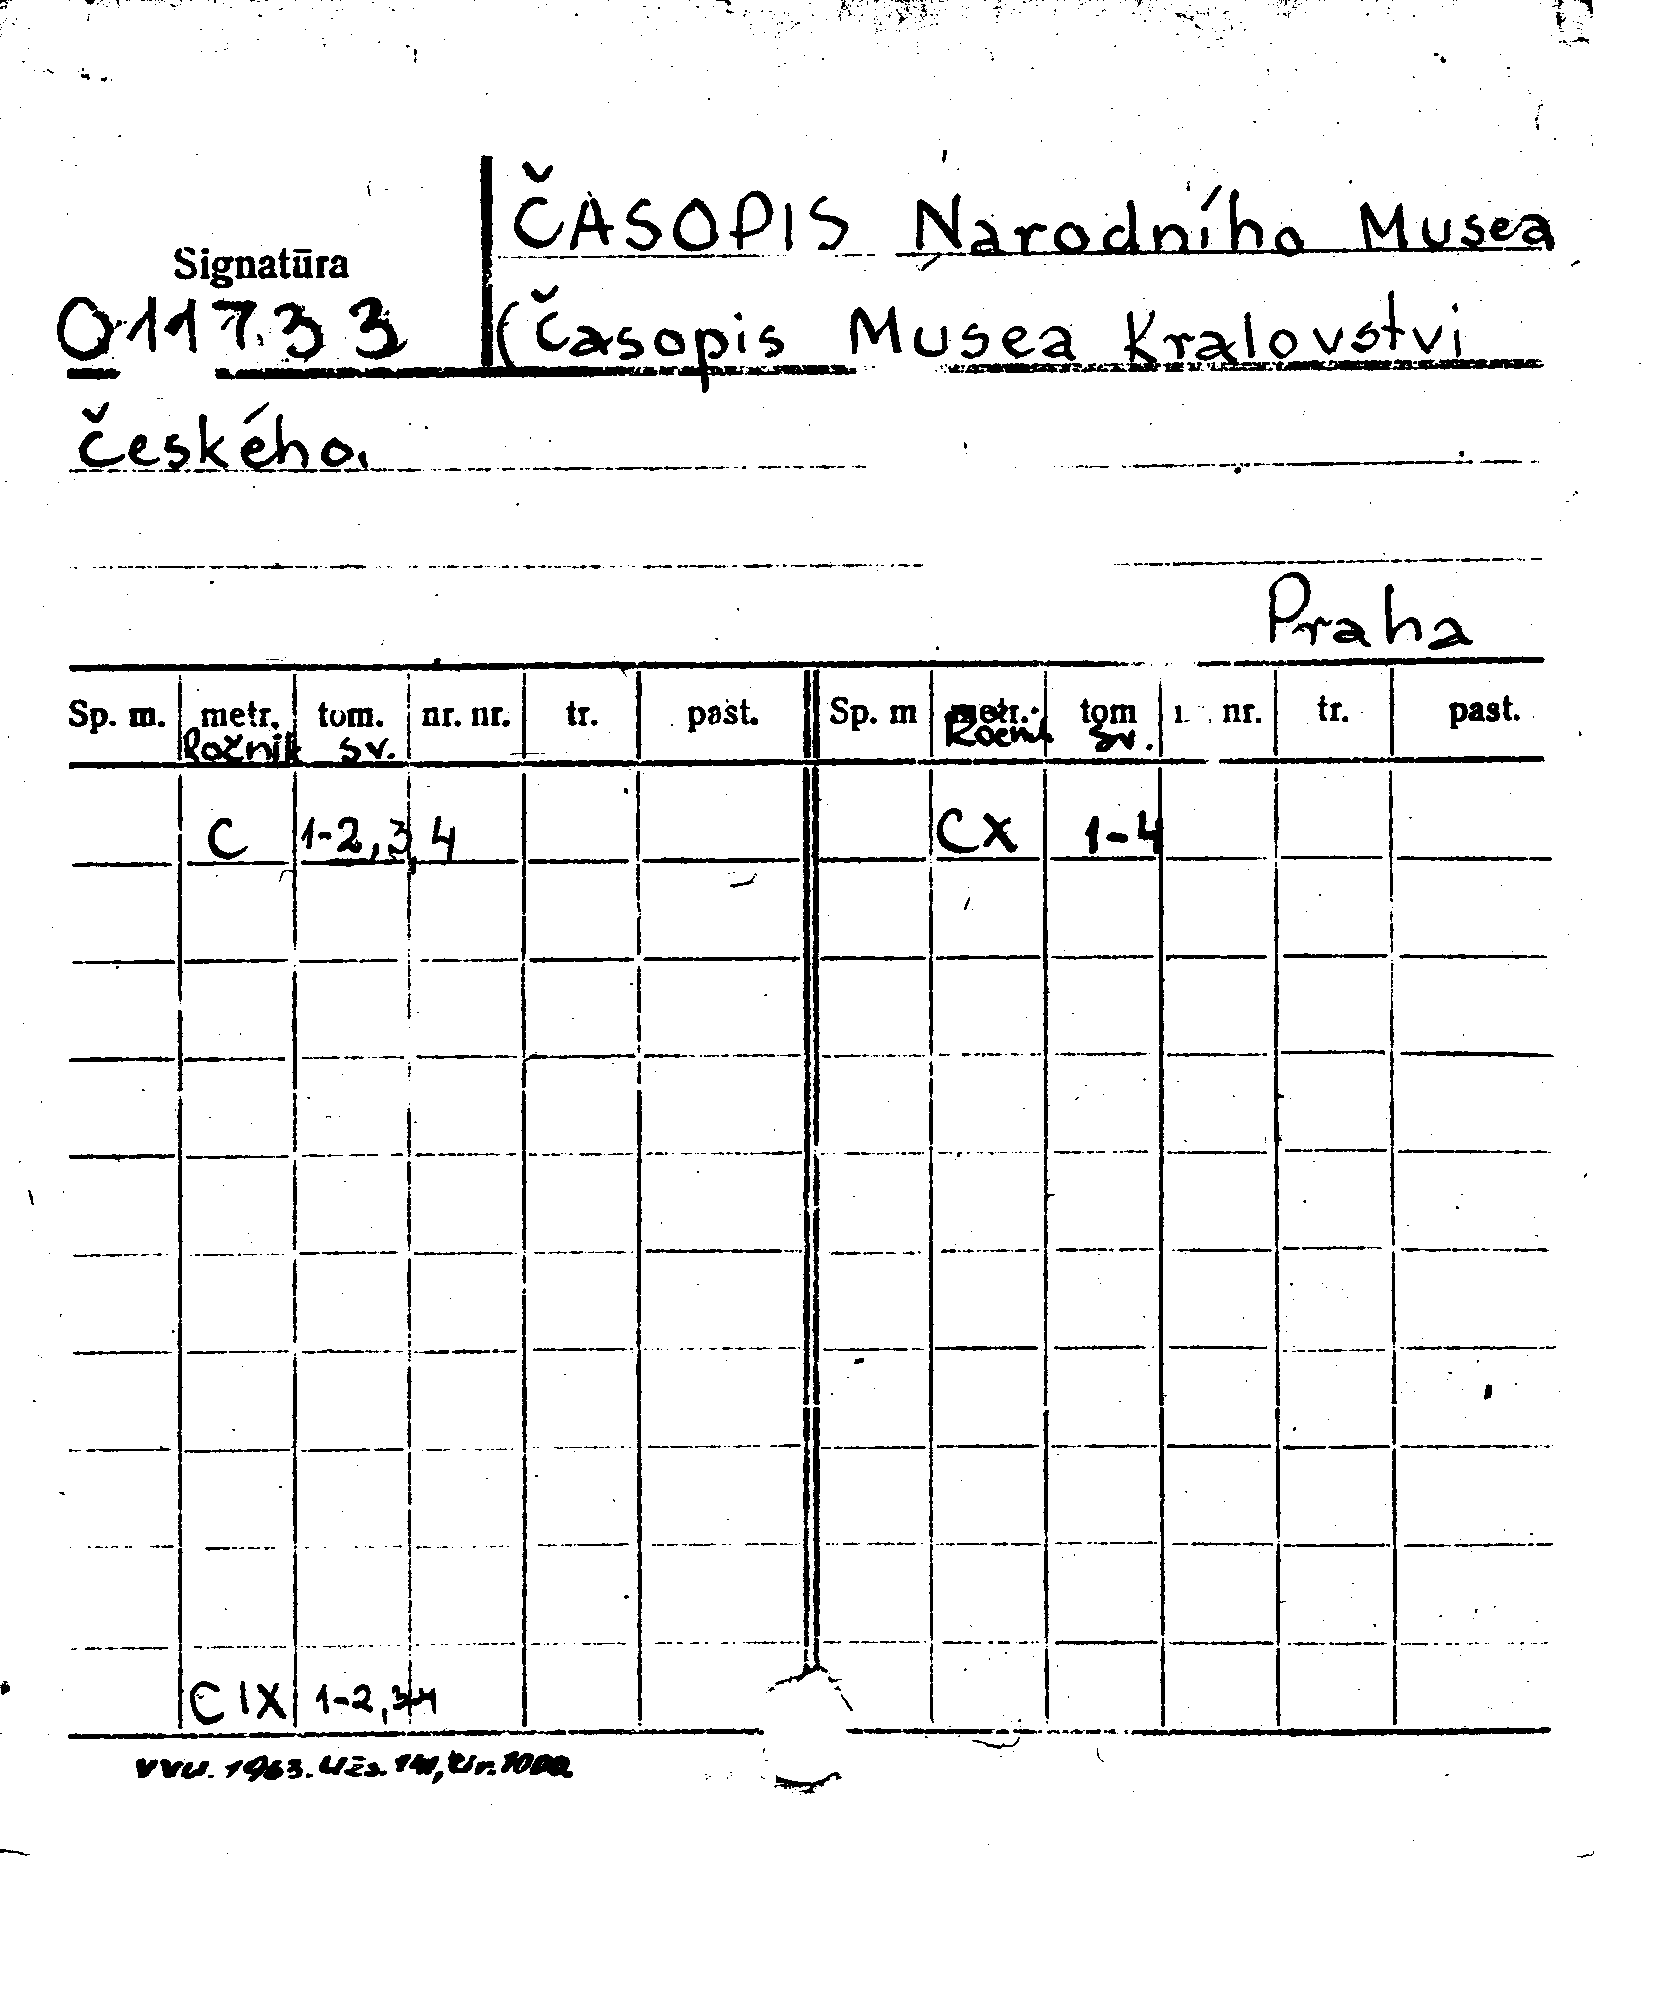 ČASOPIS Národního Musea
Signatūra
011733
(Časopis Musea Kralovstvi
Českého.
Praha
Sp. m. metr. tom. nr. nr. tr. past. Sp. m metr. tom nr. tr. past.
Ročnik sv. Ročnik sv.
C 1-2,3,4 CX 1-4
CIX 1-2,3-4
VVU. 1963. Užs. 1000